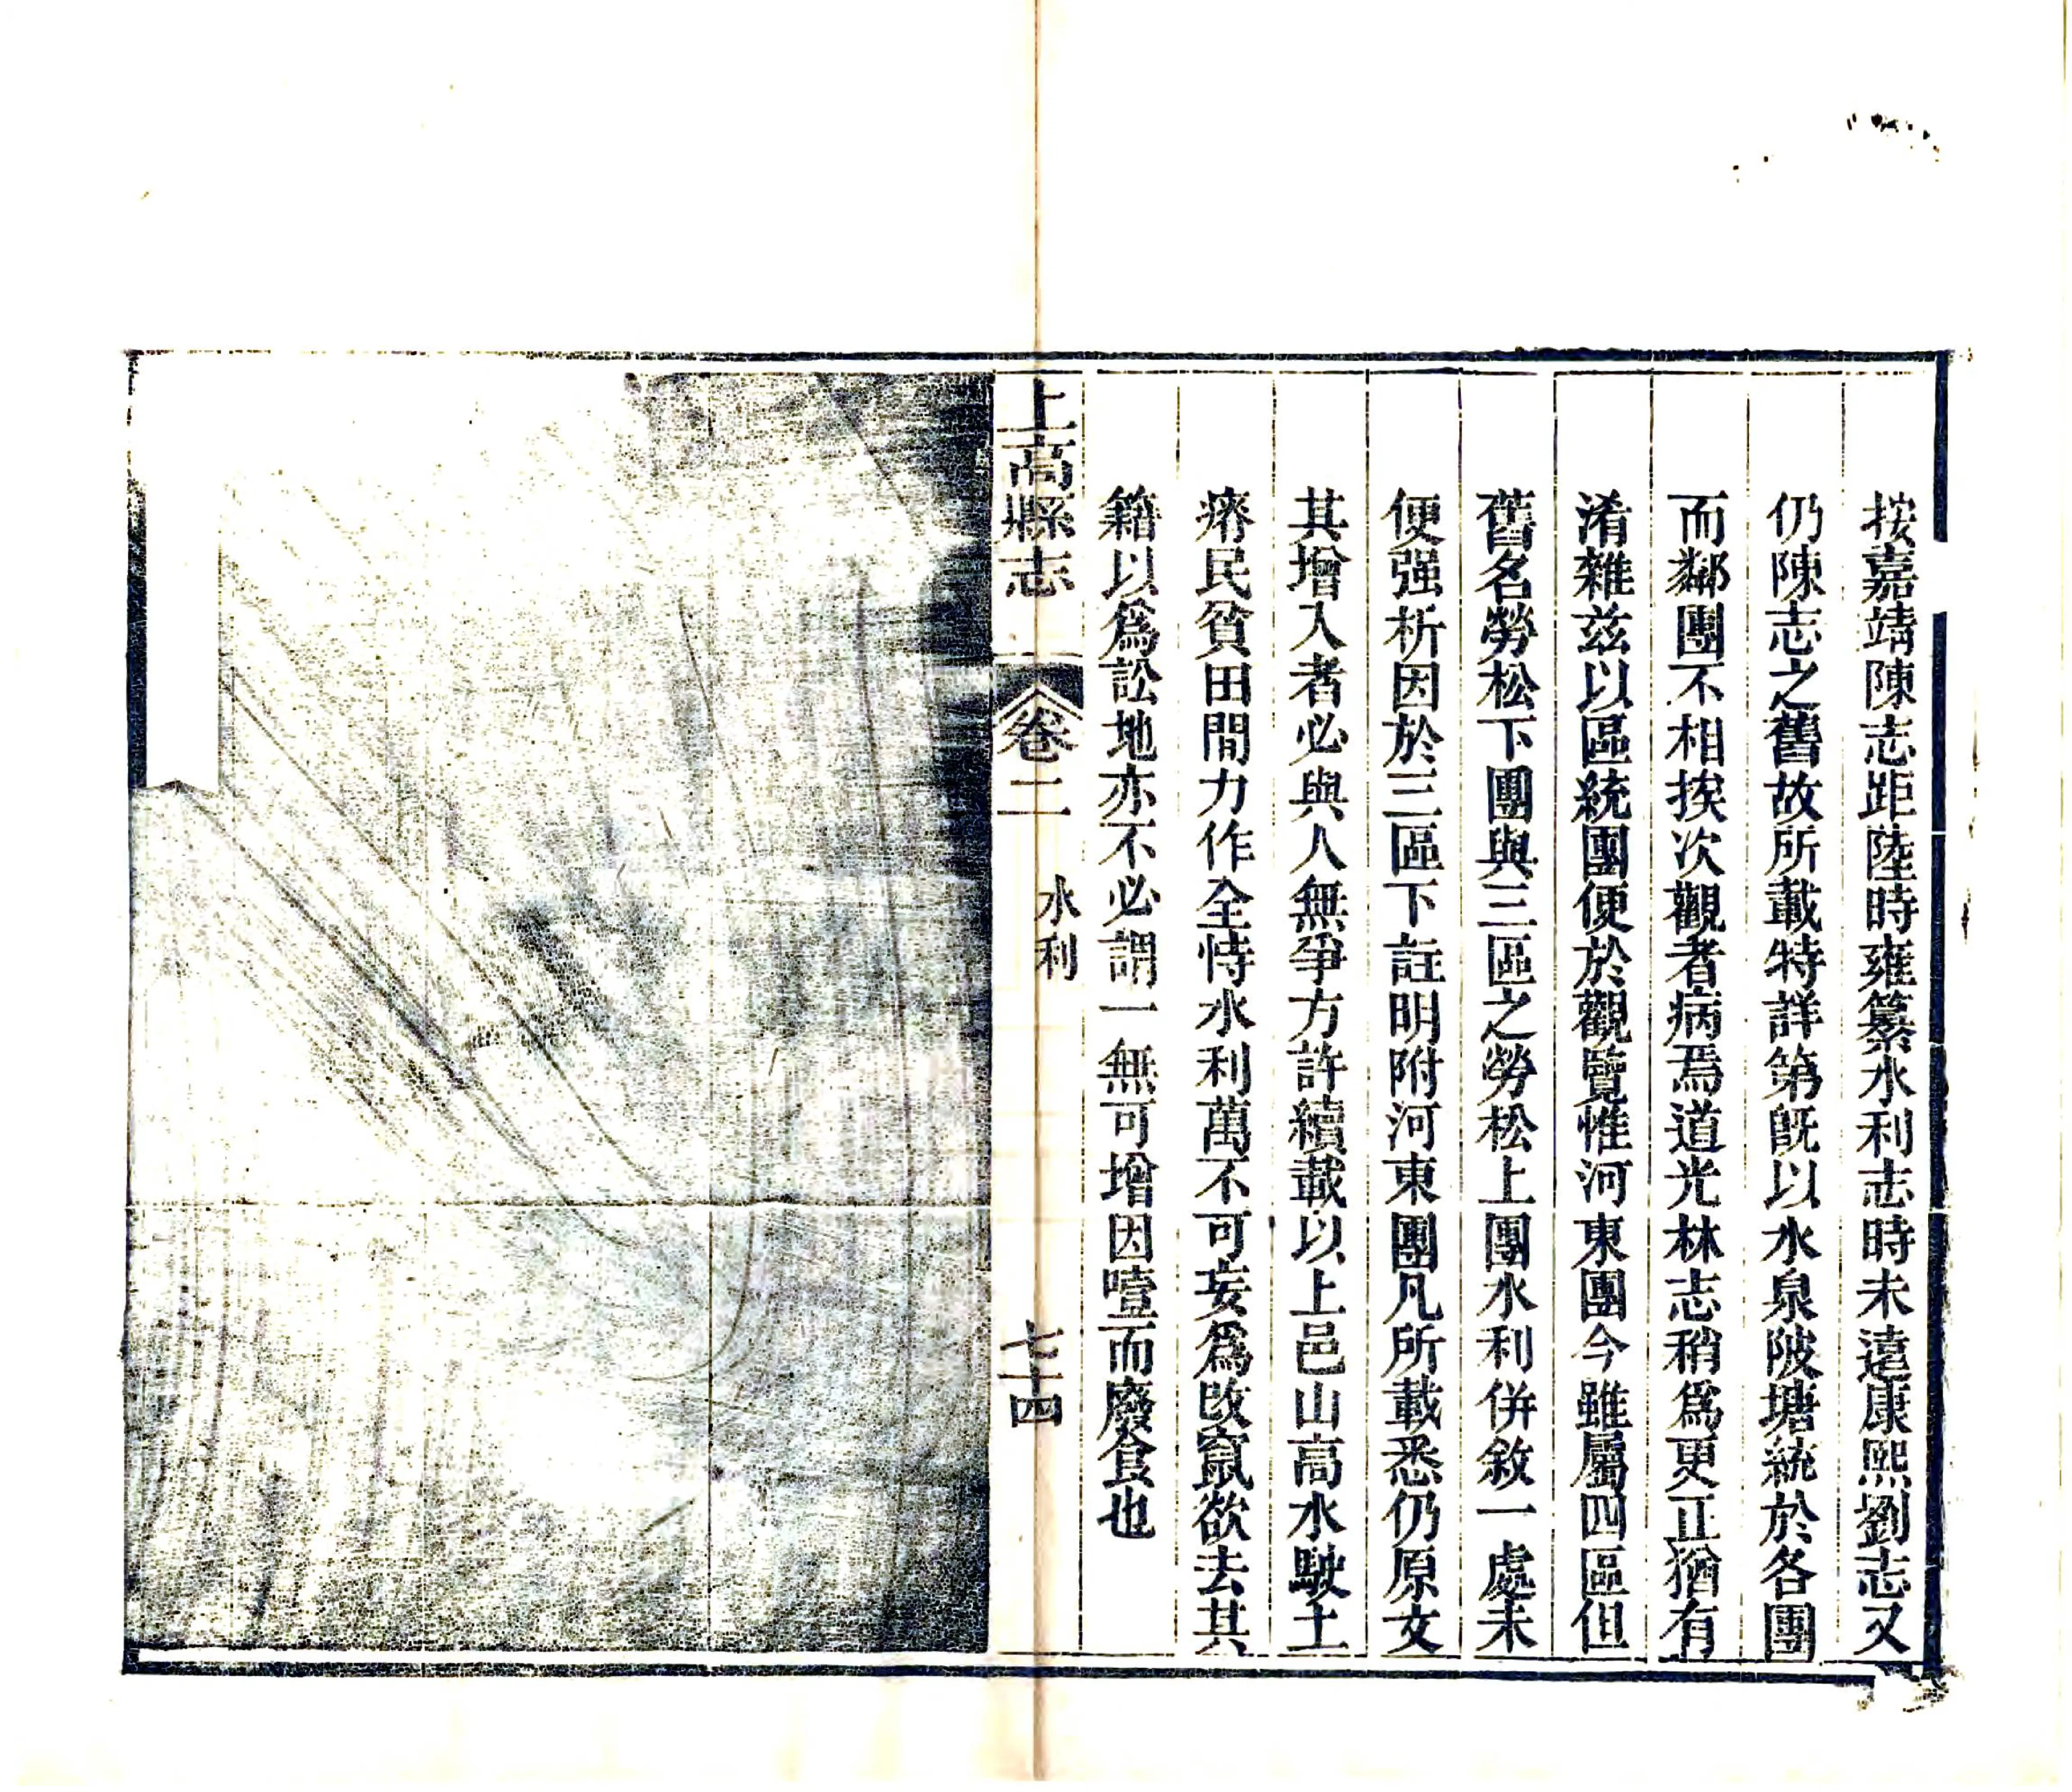 按嘉靖陳志距陸時雍纂水利志時未遠康熙劉志又
仍陳志之舊故所載特詳第旣以水泉陂塘統於各團
而鄰團不相挨次觀者病焉道光林志稍爲更正猶有
淆雜兹以區統團便於觀覽惟河東團今雖屬四區但
舊名勞松下團與三區之勞松上團水利併敘一處未
便强析因於三區下註明附河東團凡所載悉仍原文
其增入者必與人無爭方許續載以上邑山高水駛土
瘠民貧田閒力作全恃水利萬不可妄爲改竄欲去其
籍以爲訟地亦不必謂一無可增因噎而廢食也
上高縣志 卷二 水利 七十四